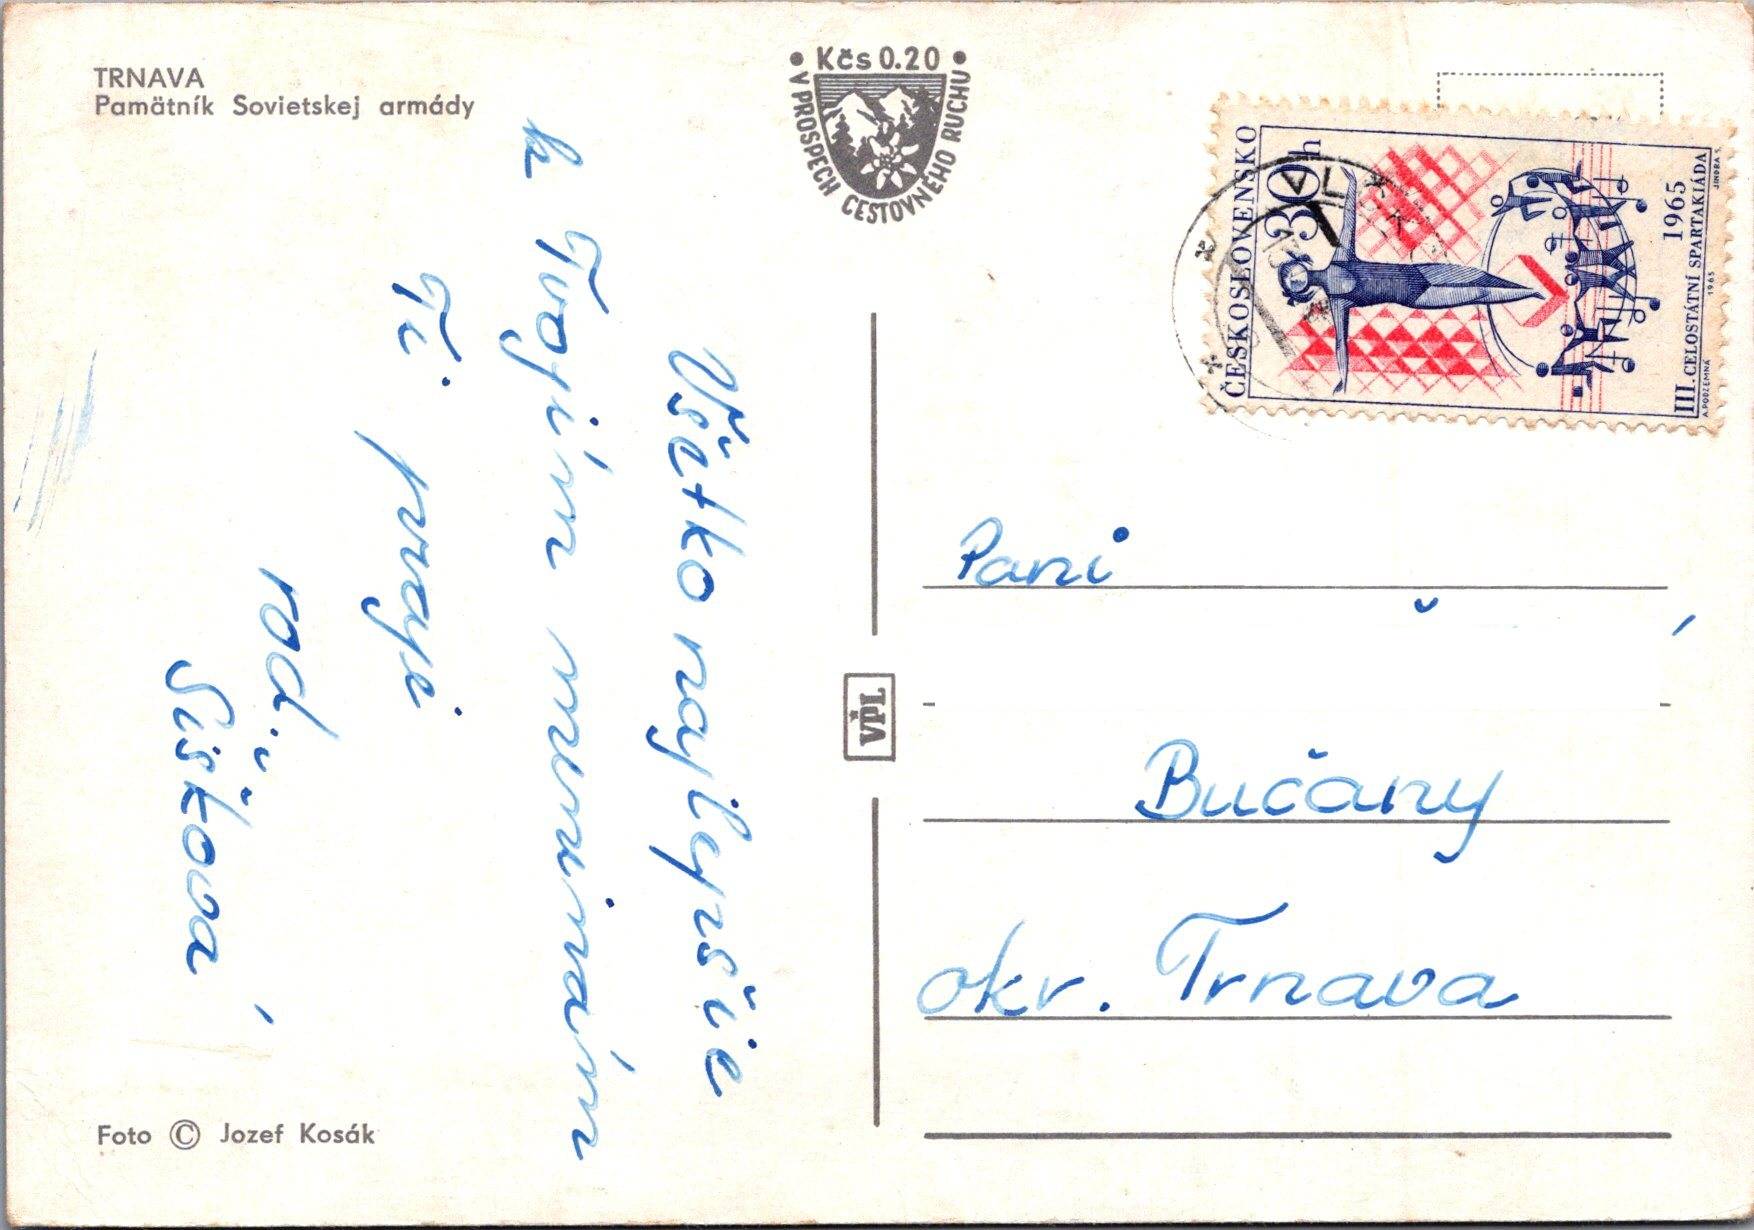 TRNAVA
Pamätník Sovietskej armády
Kčs 0.20
V PROSPECH CESTOVNÉHO RUCHU
ČESKOSLOVENSKO
30h
1965
III. CELOSTÁTNÍ SPARTAKIÁDA
A. PODZEMNÁ 1965 JINDRA S.
Všetko najlepšie
k Tvojím meninám
Ti praje
rod.
Šišková
VPL
Pani
Bučany
okr. Trnava
Foto © Jozef Kosák